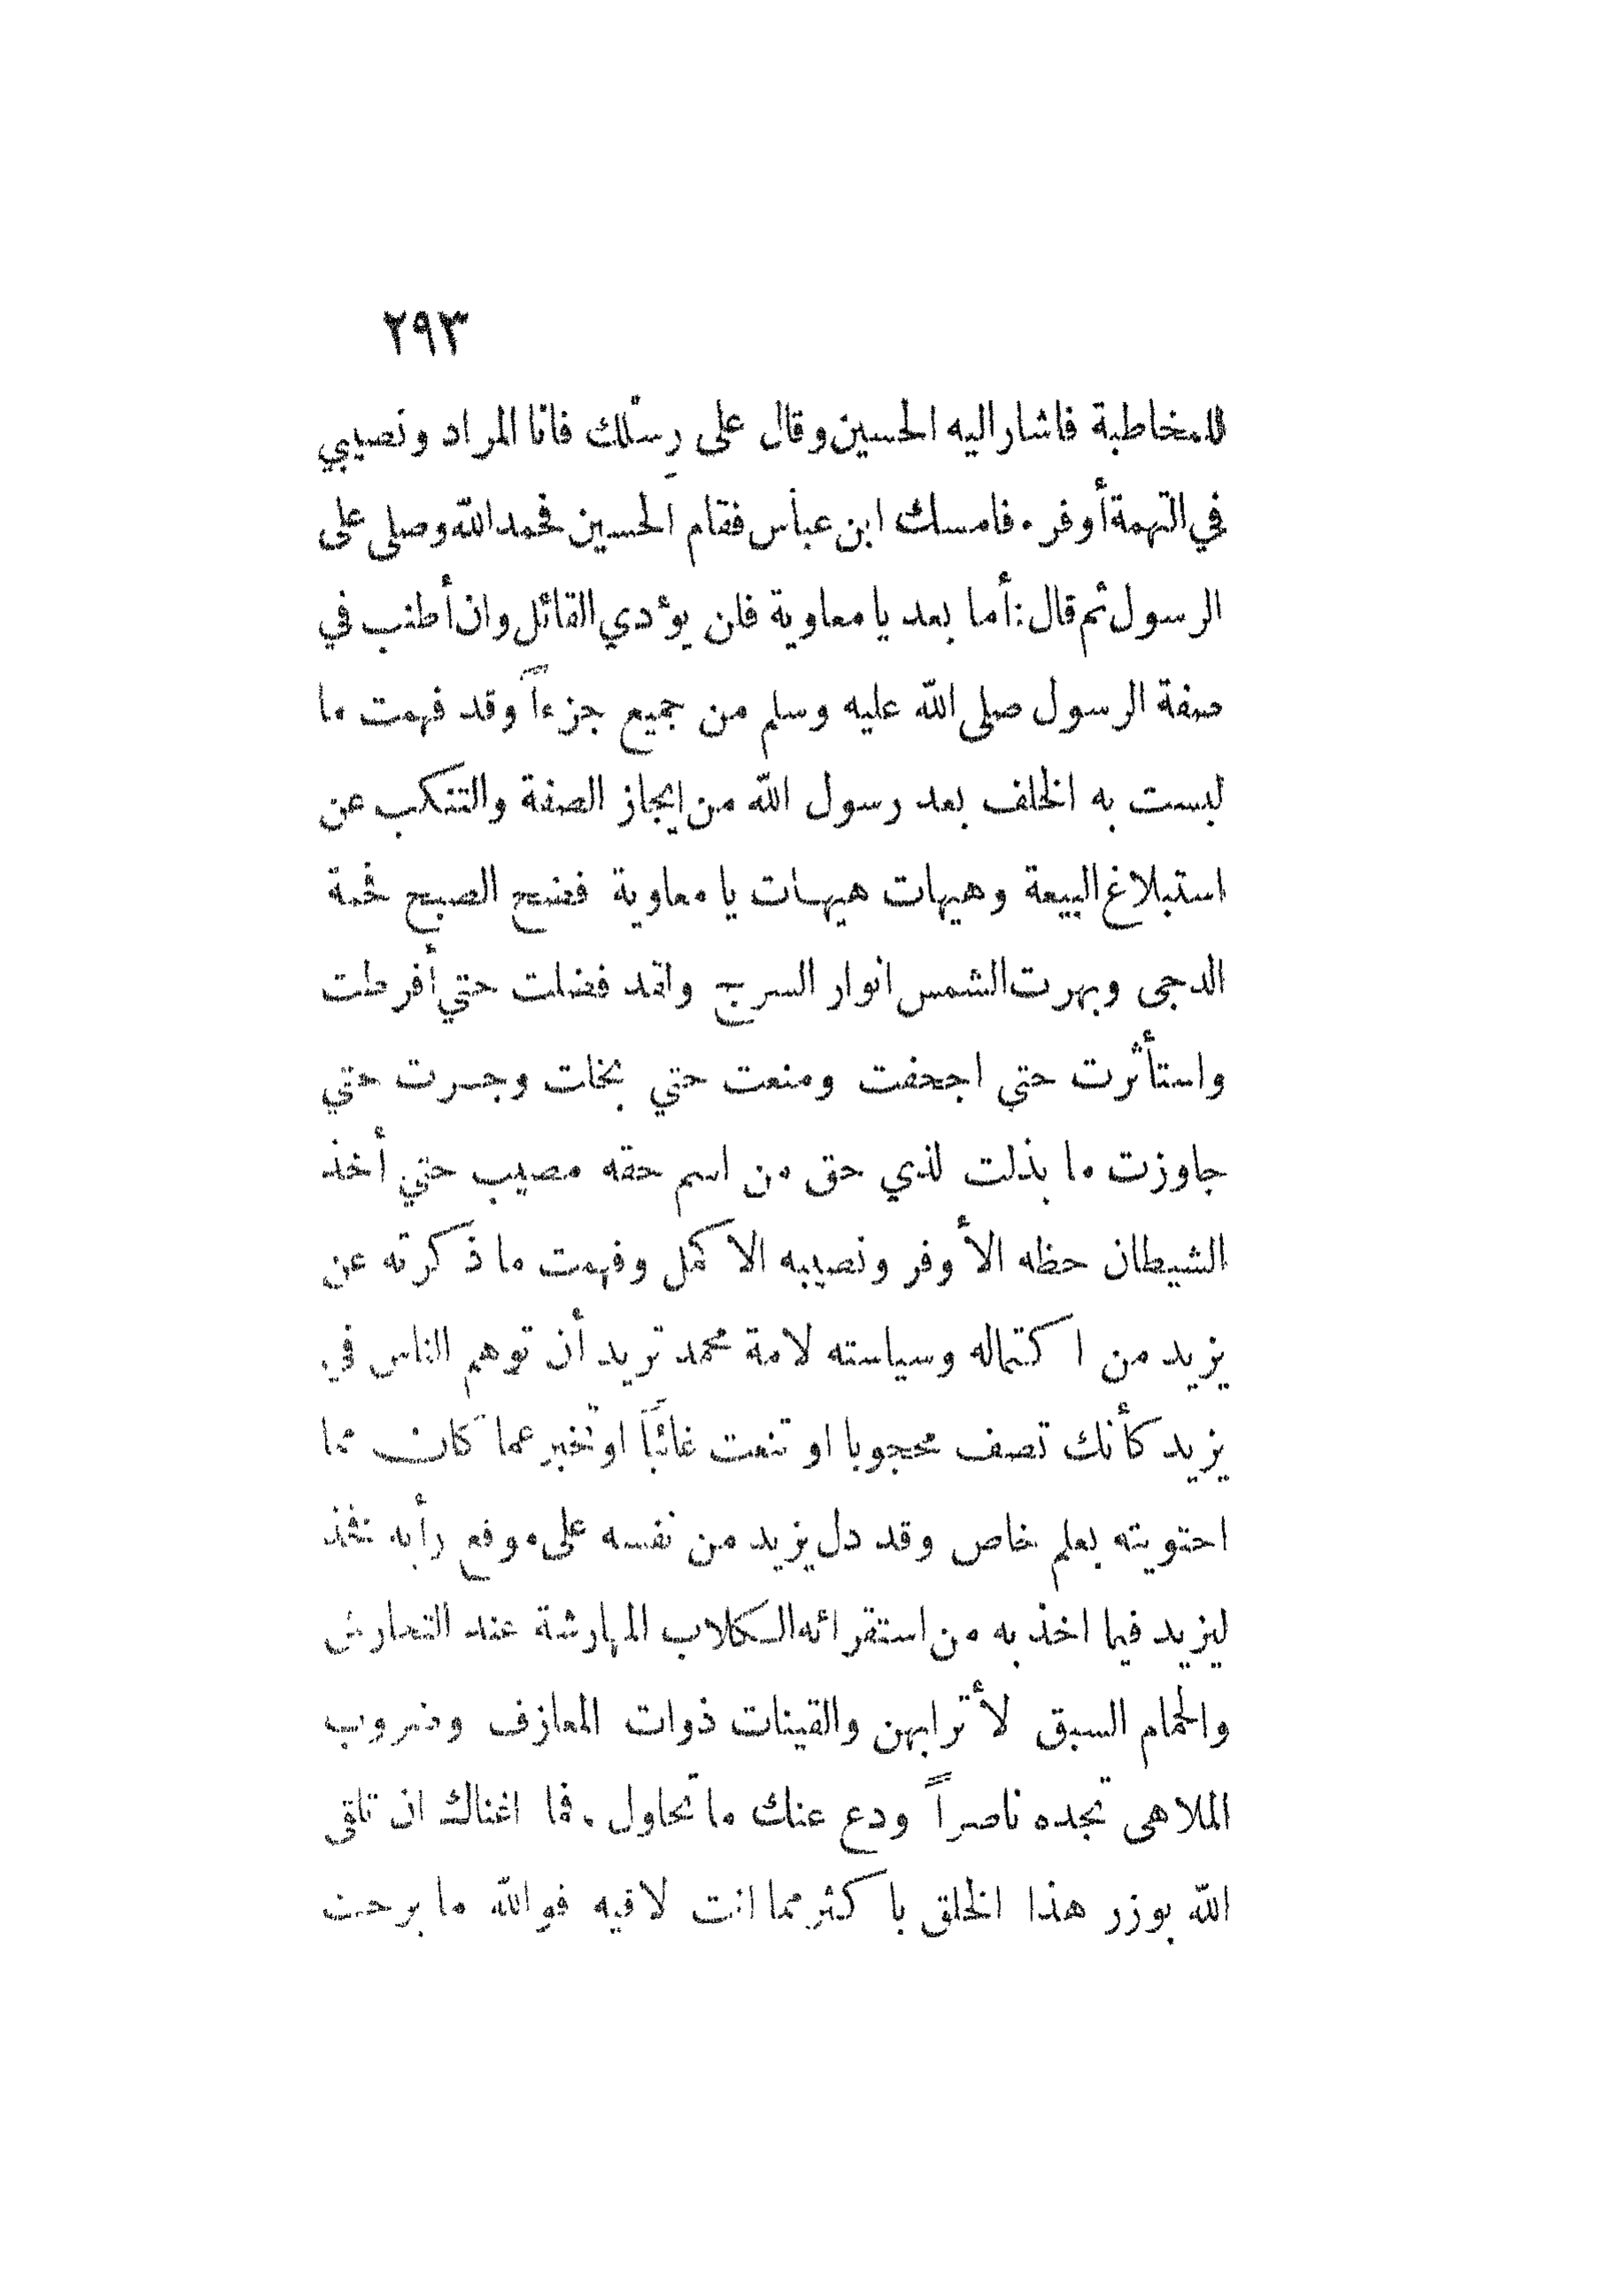 ٢٩٣
للمخاطبة فاشار اليه الحسين وقال على رِسْلك فانا المراد ونصيبي
في التهمة أوفر . فامسك ابن عباس فقام الحسين فحمد الله وصلى على
الرسول ثم قال : أما بعد يا معاوية فلن يؤدي القائل وان أطنب في
صفة الرسول صلى الله عليه وسلم من جميع جزءاً وقد فهمت ما
لبست به الخلف بعد رسول الله من ايجاز الصفة والتنكب عن
استبلاغ البيعة وهيهات هيهات يا معاوية فضح الصبح فحمة
الدجى وبهرت الشمس انوار السرج ولقد فضلت حتي أفرطت
واستأثرت حتي اجحفت ومنعت حتي بخلت وجرت حتي
جاوزت ما بذلت لذي حق من اسم حقه مصيب حتي أخذ
الشيطان حظه الأوفر ونصيبه الاكمل وفهمت ما ذكرته عن
يزيد من اكتماله وسياسته لامة محمد تريد أن توهم الناس في
يزيد كأنك تصف محجوبا او تنعت غائباً او تخبر عما كان مما
احتويته بعلم خاص وقد دل يزيد من نفسه على موقع رأيه فخذ
ليزيد فيما اخذ به من استقرائه الكلاب المهارشة عند التحارش
والحمام السبق لأترابهن والقينات ذوات المعازف وضروب
الملاهى تجده ناصراً ودع عنك ما تحاول . فما اغناك ان تلقى
الله بوزر هذا الخلق باكثر مما انت لاقيه فوالله ما برحت